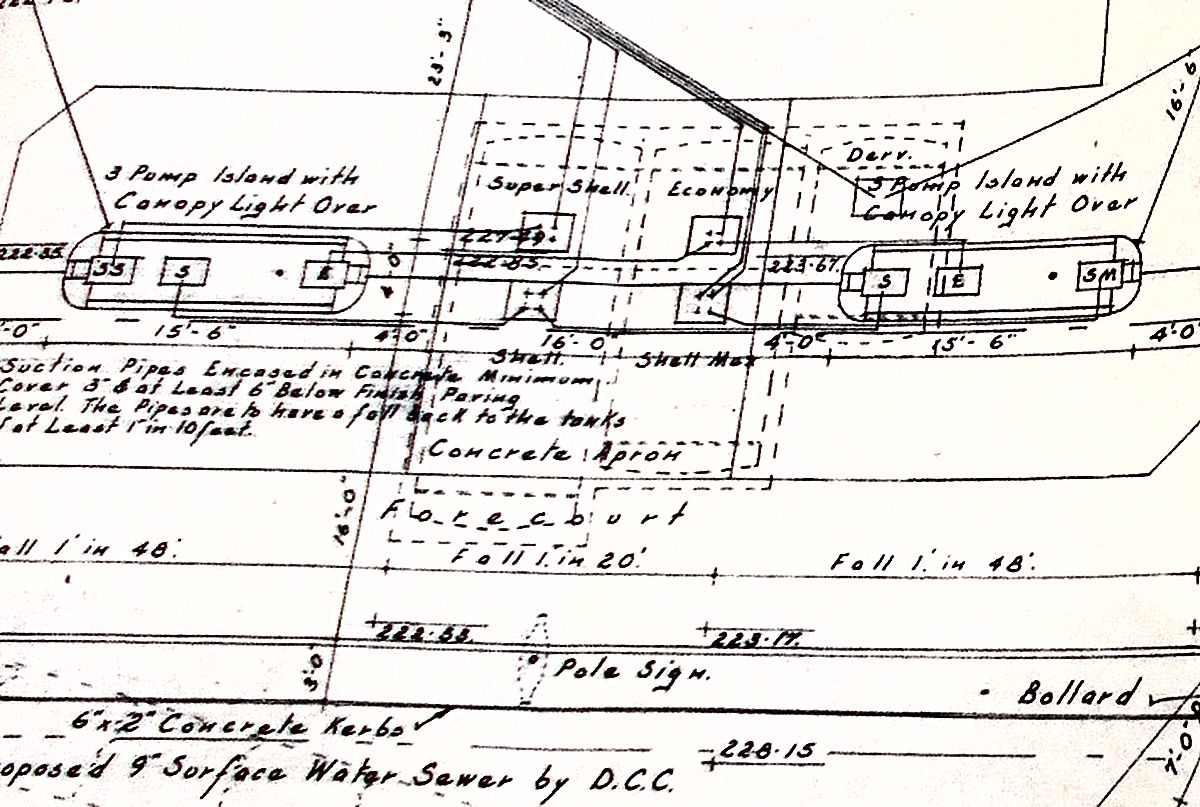 23'-3"
16'-6"
3 Pump Island with
Canopy Light Over
Super Shell.
Economy
Derv.
3 Pump Island with
Canopy Light Over
222.85.
223.67.
SS
S
E
4'-0"
S
E
SM
-0"
15'-6"
4'-0"
16'-0"
4'-0"
15'-6"
4'-0"
Shell.
Shell Mex
Suction Pipes Encased in Concrete Minimum
Cover 3" & at Least 6" Below Finish Paving
Level. The Pipes are to have a fall back to the tanks
of at Least 1" in 10 feet.
Concrete Apron
16'-0"
Forecourt
all 1' in 48'.
Fall 1' in 20'.
Fall 1' in 48'.
222.53.
223.17.
3'-0"
Pole Sign.
Bollard
6"x2" Concrete Kerbs
228.15
7'-0"
oposed 9" Surface Water Sewer by D.C.C.